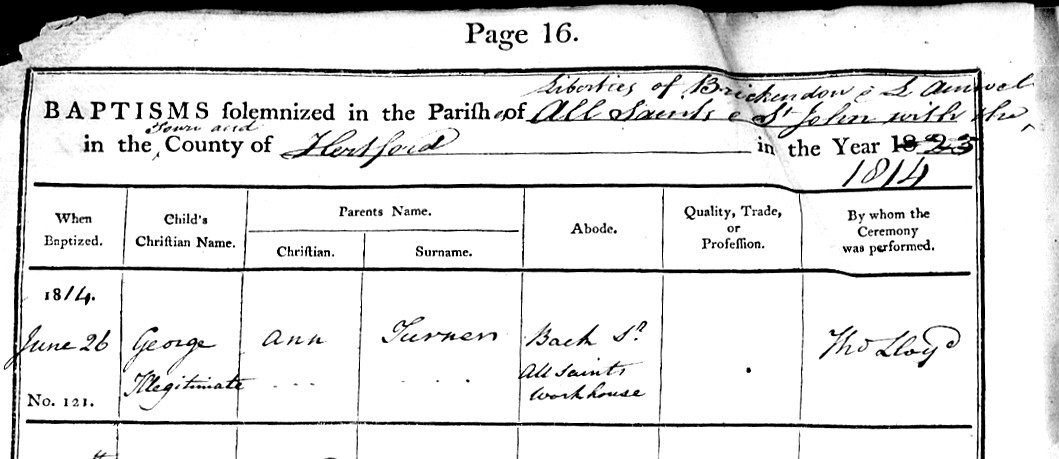 Page 16.
Liberties of Brickendon & L Amwel
BAPTISMS solemnized in the Parish of All Saints & St John with the
Town and
in the County of Hertford in the Year 1823
1814
When Baptized.
Child's Christian Name.
Parents Name.
Christian.
Surname.
Abode.
Quality, Trade, or Profession.
By whom the Ceremony was performed.
1814.
June 26
George
Ann
Turner
Back St
Tho Lloyd
Illegitimate
All Saints
Workhouse
No. 121.